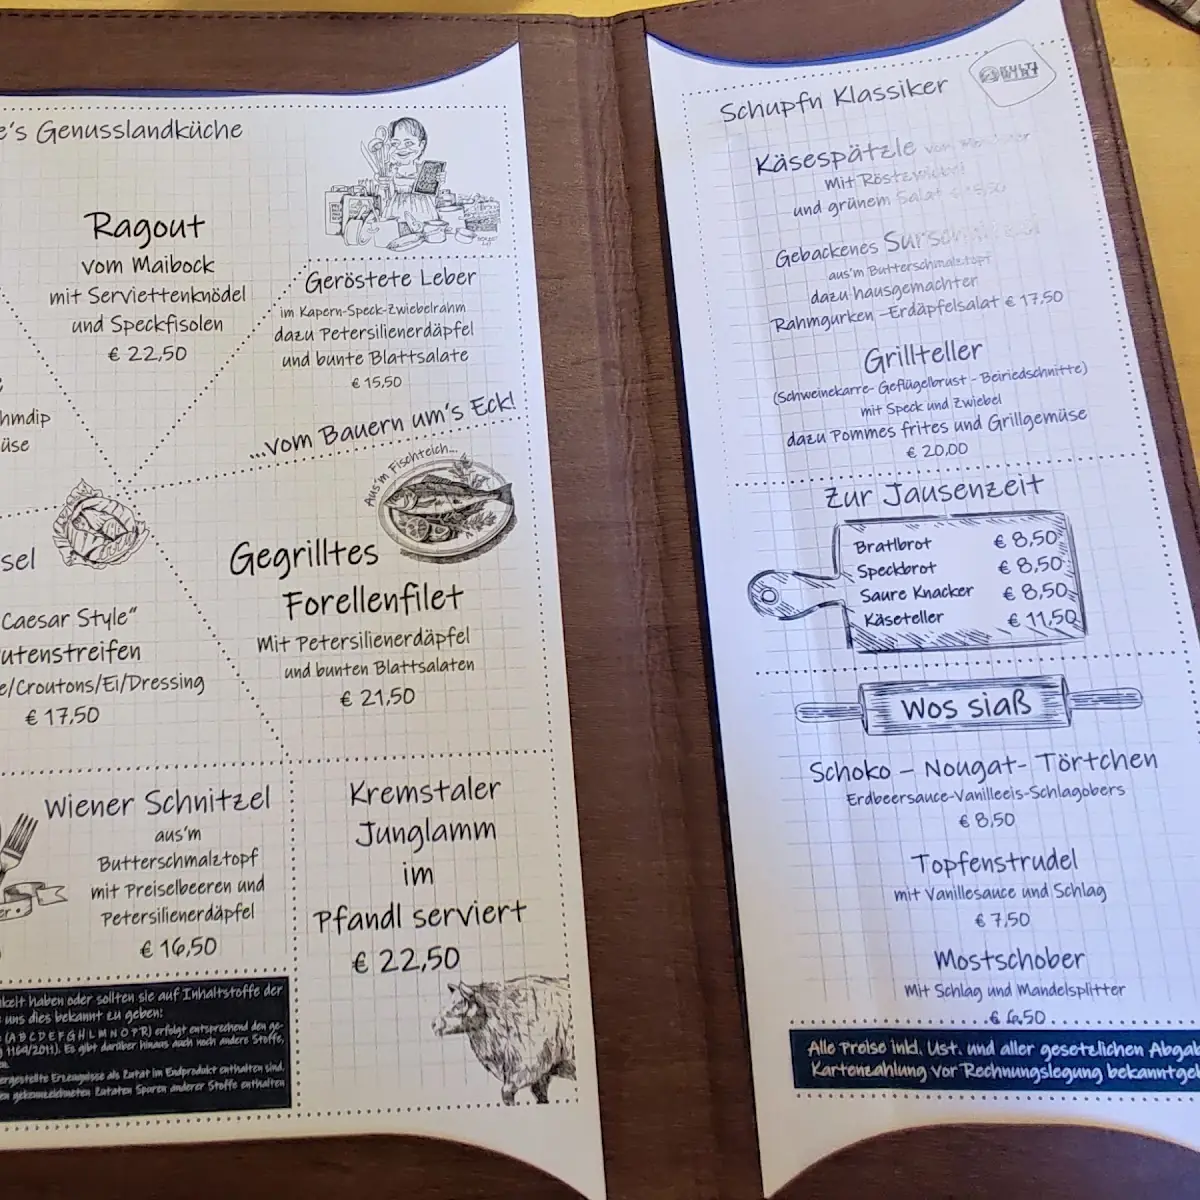 e's Genusslandküche
Ragout
vom Maibock
mit Serviettenknödel
und Speckfisolen
€ 22,50
Geröstete Leber
im Kapern-Speck-Zwiebelrahm
dazu Petersilienerdäpfel
und bunte Blattsalate
€ 15,50
hmdip
üse
...vom Bauern um's Eck!
Aus'm Fischteich...
sel
Caesar Style“
utenstreifen
e/Croutons/Ei/Dressing
€ 17,50
Gegrilltes
Forellenfilet
Mit Petersilienerdäpfel
und bunten Blattsalaten
€ 21,50
Wiener Schnitzel
aus'm
Butterschmalztopf
mit Preiselbeeren und
Petersilienerdäpfel
€ 16,50
Kremstaler
Junglamm
im
Pfandl serviert
€ 22,50
keit haben oder sollten sie auf Inhaltsstoffe der
uns dies bekannt zu geben:
(A B C D E F G H L M N O P R) erfolgt entsprechend den ge-
1169/2011). Es gibt darüber hinaus auch noch andere Stoffe,
ergestellte Erzeugnisse als Zutat im Endprodukt enthalten sind,
en gekennzeichneten Zutaten Spuren anderer Stoffe enthalten
Schupfn Klassiker
Käsespätzle vom
mit Röstzwiebel
und grünem Salat
Gebackenes
aus'm Butterschmalztopf
dazu hausgemachter
Rahmgurken -Erdäpfelsalat € 17,50
Grillteller
(Schweinekarre- Geflügelbrust - Beiriedschnitte)
mit Speck und Zwiebel
dazu Pommes frites und Grillgemüse
€ 20,00
Zur Jausenzeit
Bratlbrot € 8,50
Speckbrot € 8,50
Saure Knacker € 8,50
Käseteller € 11,50
Wos siaß
Schoko – Nougat- Törtchen
Erdbeersauce-Vanilleeis-Schlagobers
€ 8,50
Topfenstrudel
mit Vanillesauce und Schlag
€ 7,50
Mostschober
mit Schlag und Mandelsplitter
€ 6,50
Alle Preise inkl. Ust. und aller gesetzlichen Abgab
Kartenzahlung vor Rechnungslegung bekanntgeb